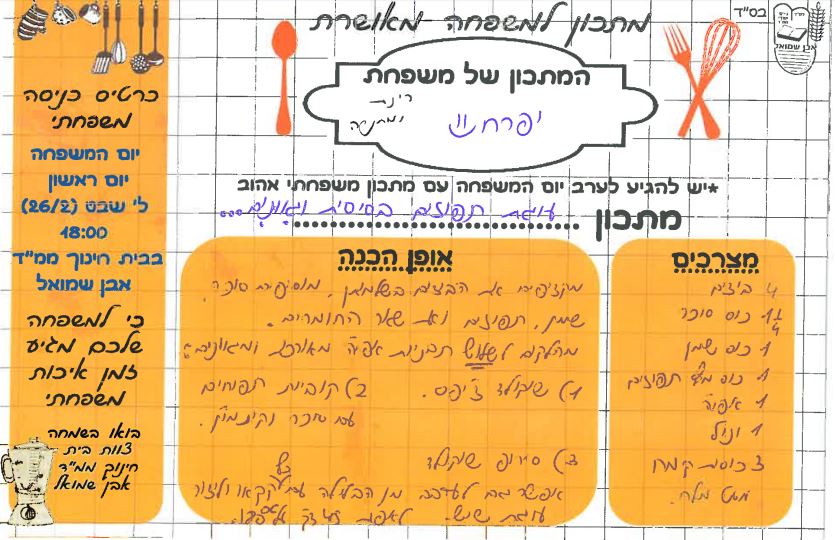 בס"ד
אבן שמואל
מתכון למשפחה מאושרת
המתכון של משפחת
רינת
יפרח
*יש להגיע לערב יום המשפחה עם מתכון משפחתי אהוב
מתכון עוגת תפוזים בסיסית וגוונים...
כרטיס כניסה
משפחתי
יום המשפחה
יום ראשון
ל' שבט (26/2)
18:00
בבית חינוך ממ"ד
אבן שמואל
כי למשפחה
שלכם מגיע
זמן איכות
משפחתי
בואו בשמחה
צוות בית
חינוך ממ"ד
אבן שמואל
מצרכים
4 ביצים
1 1/4 כוס סוכר
1 כוס שמן
1 כוס מיץ תפוזים
1 אפיה
1 וניל
3 כוסות קמח
מעט מלח.
אופן הכנה
מקציפים את הביצים בשלמותן, מוסיפים סוכר,
שמן, תפוזים ואת שאר החומרים.
מחלקים לשלוש תבניות אפיה מאורכות ומגוונים:
1) שוקולד צ'יפס. 2) קוביות תפוחים
עם סוכר וקינמון.
3) סירופ שוקולד
אפשר גם לערבב מן הבלילה עם קקאו וליצור
עוגת שיש.